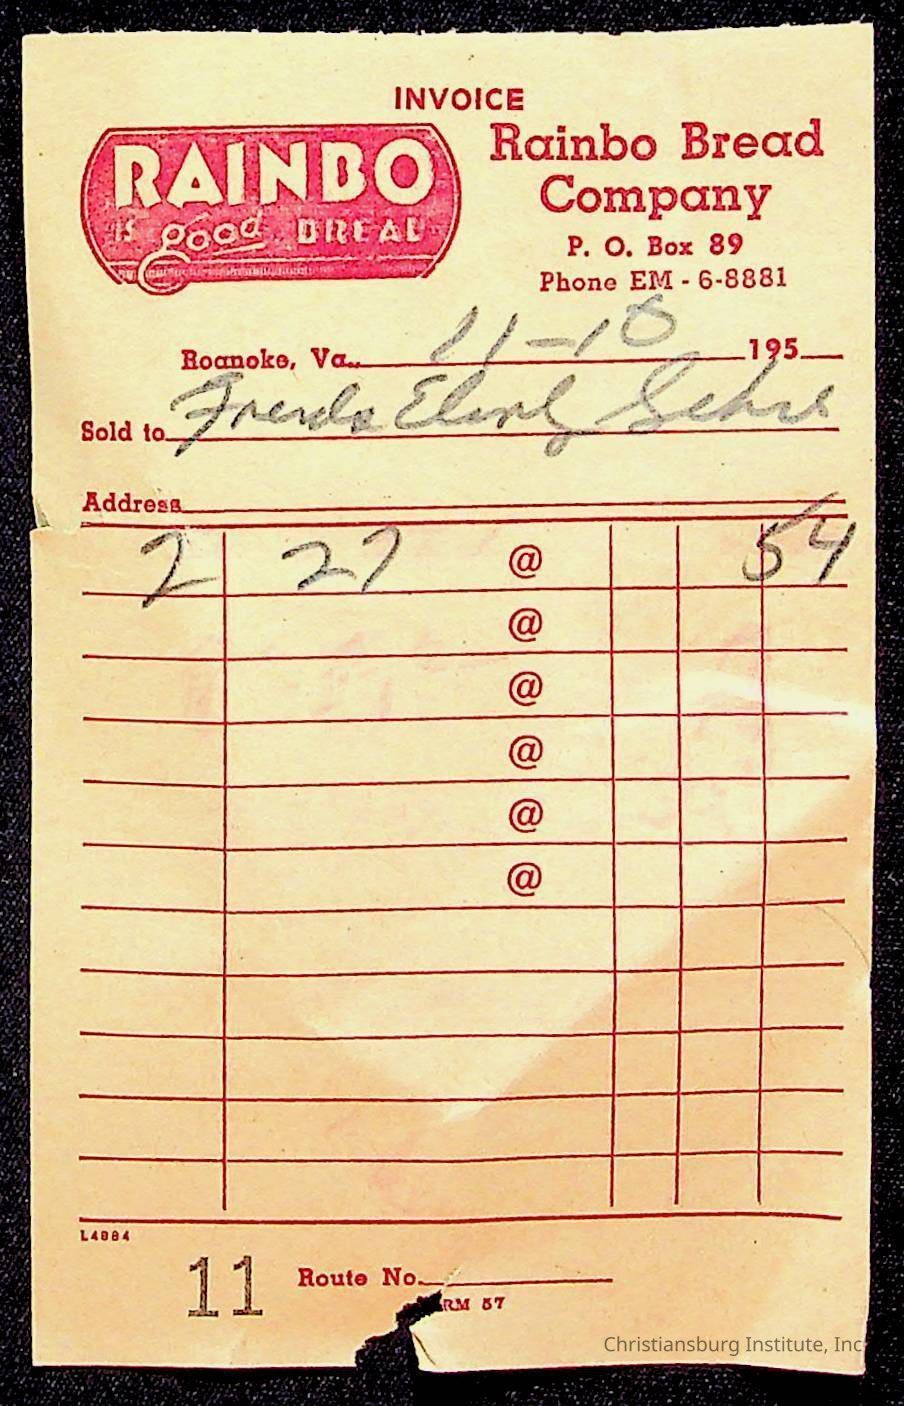 INVOICE
RAINBO
IS good BREAD
Rainbo Bread
Company
P. O. Box 89
Phone EM - 6-8881
Roanoke, Va. 11-10 195
Sold to Friends Elem
Address
2 27 @ 54
@
@
@
@
@
L4884
11 Route No.
RM 57
Christiansburg Institute, Inc